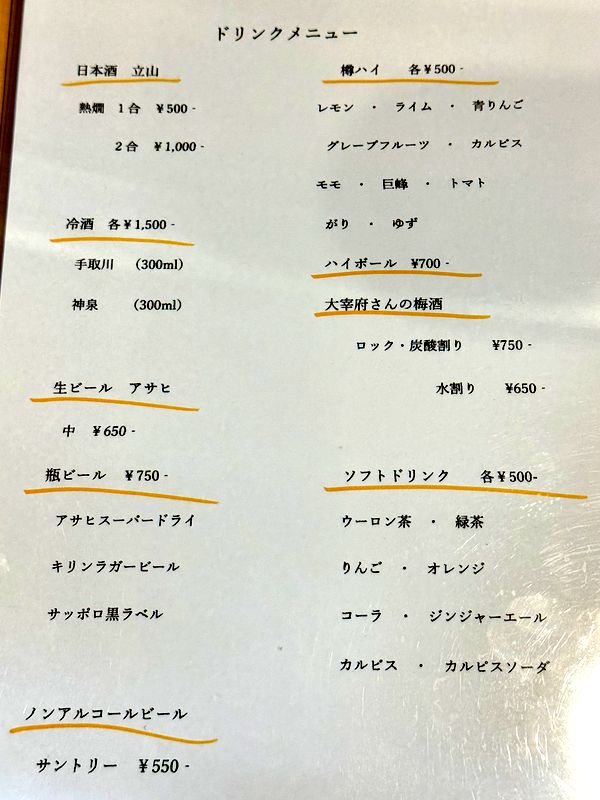 ドリンクメニュー
日本酒 立山
熱燗 1合 ¥500-
2合 ¥1,000-
冷酒 各¥1,500-
手取川 (300ml)
神泉 (300ml)
生ビール アサヒ
中 ¥650-
瓶ビール ¥750-
アサヒスーパードライ
キリンラガービール
サッポロ黒ラベル
ノンアルコールビール
サントリー ¥550-
樽ハイ 各¥500-
レモン ・ ライム ・ 青りんご
グレープフルーツ ・ カルピス
モモ ・ 巨峰 ・ トマト
がり ・ ゆず
ハイボール ¥700-
大宰府さんの梅酒
ロック・炭酸割り ¥750-
水割り ¥650-
ソフトドリンク 各¥500-
ウーロン茶 ・ 緑茶
りんご ・ オレンジ
コーラ ・ ジンジャーエール
カルピス ・ カルピスソーダ